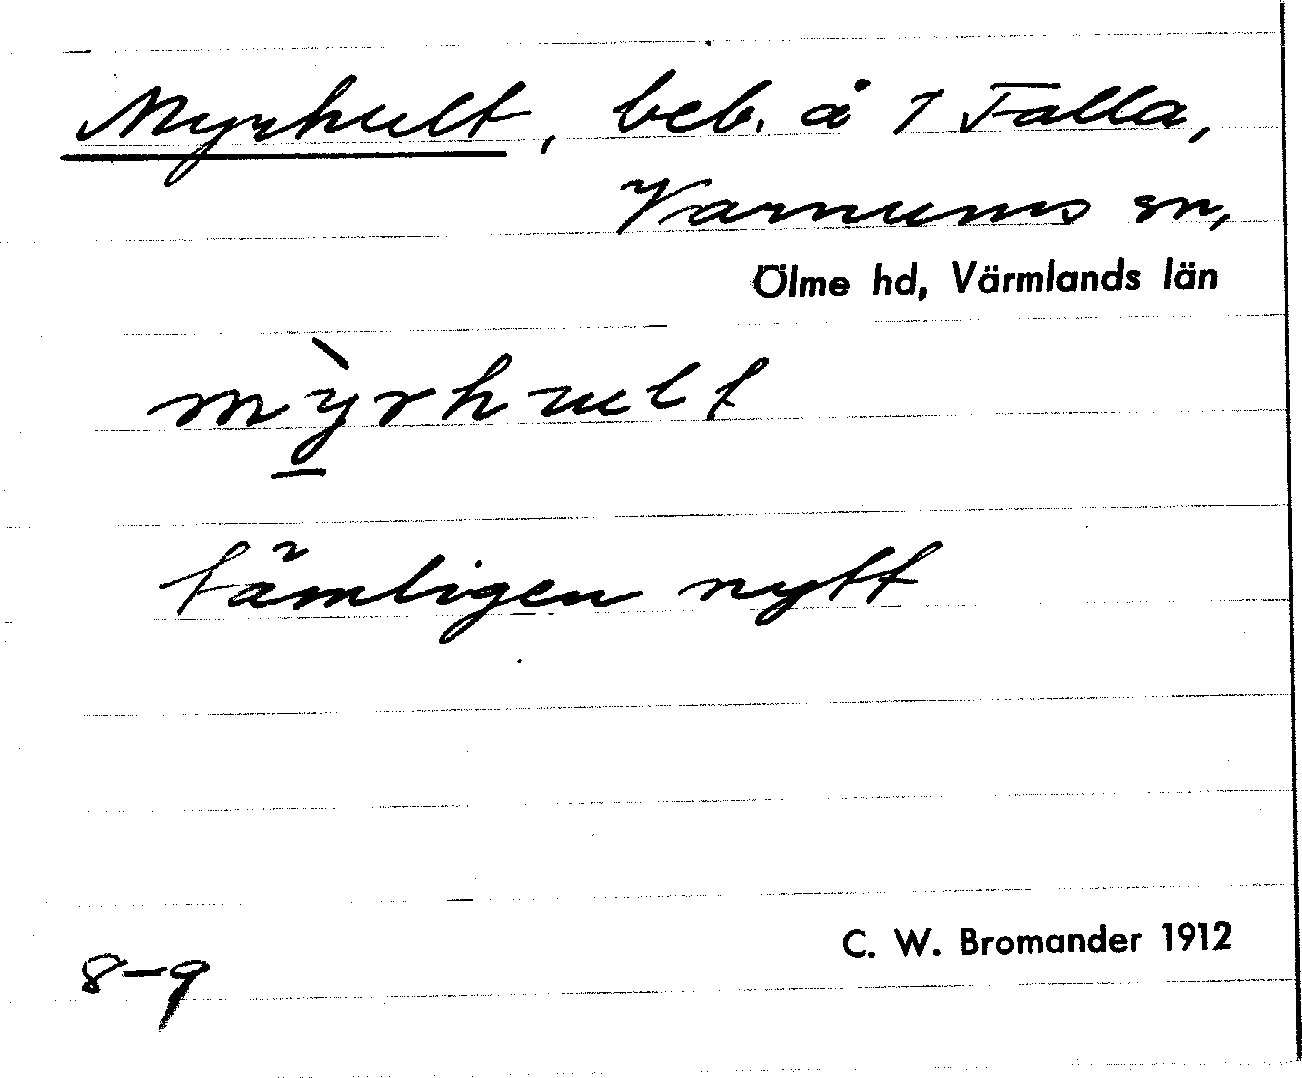 Myrhult, beb. å 1 Falla,
Varnums sn,
Ölme hd, Värmlands län
mỳrhult
tämligen nytt
C. W. Bromander 1912
8-9